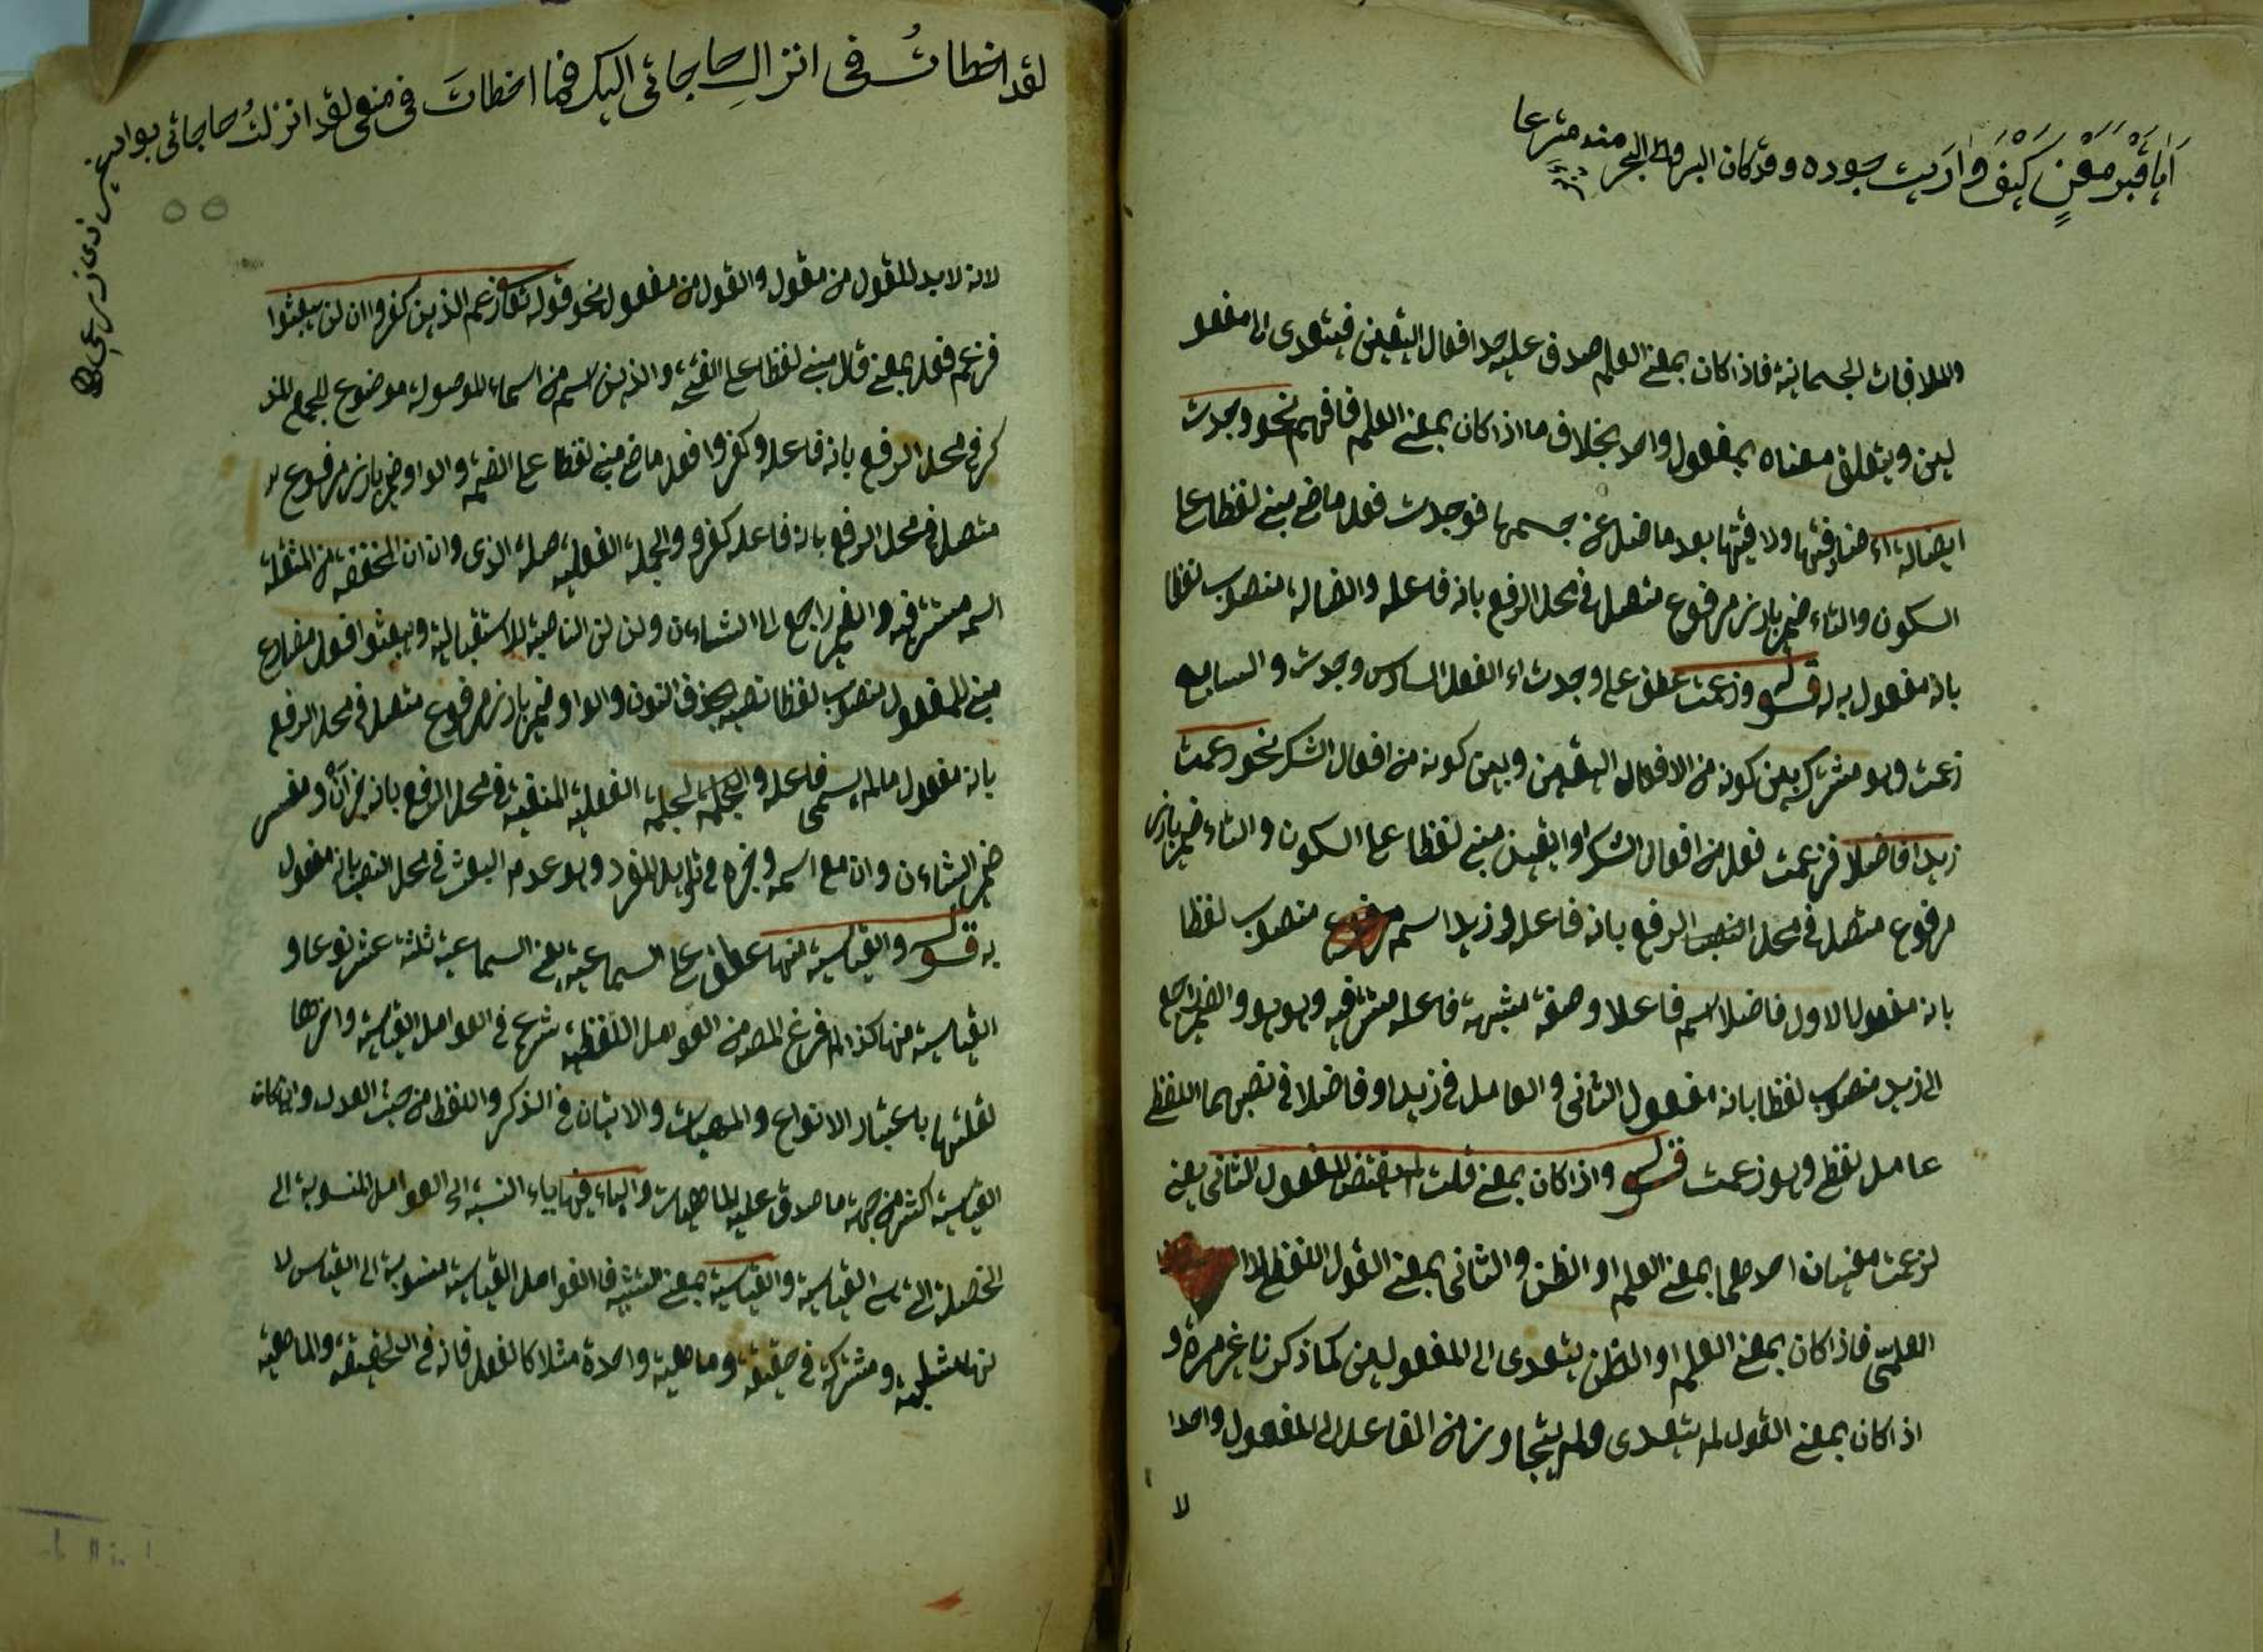 أَيَا قَبْرَ مَعْنٍ كَيْفَ وَارَيْتَ جوده وقد كان البر والبحر منه مترعا
والملاقات الجسمانية فاذا كان بمعنى العلم صدق عليه حد افعال اليقين فيتعدى الى مفعو
لين ويتعلق معناه بمفعول واحد بخلاف ما اذا كان بمعنى العلم فافهم نحو وجدت
ايضالة اى صادفتها ولاقيتها بعد ما ضل عن جسمها فوجدت فعل ماض مبنى لفظا على
السكون والتاء ضمير بارز مرفوع متصل فى محل الرفع بانه فاعله والضالة منصوب لفظا
بانه مفعول به له قوله وزعمت عطف على وجدت اى الفعل السادس وجدت والسابع
زعمت وهو مشترك بين كونه من الافعال اليقين وبين كونه من افعال الشك نحو زعمت
زيدا فاضلا فزعمت فعل من افعال الشك او اليقين مبنى لفظا على السكون والتاء ضمير بارز
مرفوع متصل فى محل الرفع بانه فاعله وزيدا اسم منصوب لفظا
بانه مفعول الاول فاضلا اسم فاعل او صفة مشبهة فاعله مستتر فيه وهو هو والضمير راجع
الى زيد منصوب لفظا بانه مفعول الثانى والعامل فى زيدا وفاضلا فى نصبهما اللفظى
عامل لفظى وهو زعمت قوله واذا كان بمعنى قلت لم يقتض المفعول الثانى يعنى
لزعمت معنيان احدهما بمعنى العلم او الظن والثانى بمعنى القول اللفظى
العلمى فاذا كان بمعنى العلم او الظن يتعدى الى المفعولين كما ذكرنا غير مرة و
اذا كان بمعنى القول لم يتعدى ولم يتجاوز من الفاعل الى المفعول واحدا
لا
لقد اخطاتُ فى انزال حاجاتى اليك فما اخطاتَ فى منعى لقد انزلتُ حاجاتى بواد غير ذى زرع
٥٥
لانه لا بد للقول من مقول والقول من مفعول نحو قوله تعالى زعم الذين كفروا ان لن يبعثوا
فزعم فعل بمعنى قال مبنى لفظا على الفتحة والذين اسم من اسماء الموصولة موضوع للجمع المذ
كر فى محل الرفع بانه فاعله وكفروا فعل ماض مبنى لفظا على الضمة والواو ضمير بارز مرفوع
متصل فى محل الرفع بانه فاعله كفرو والجملة الفعلية صلة الذى وان ان المخففة من المثقلة
اسمه مستتر فيه والضمير راجع الى الشاءن ولن لن الناصبة للاستقبالية ويبعثوا فعل مضارع
مبنى للمفعول منصوب لفظا نصبه بحذف النون والواو ضمير بارز مرفوع متصل فى محل الرفع
بانه مفعول مالم يسمى فاعله والجملة الجملة الفعلية المنفية فى محل الرفع بانه خبر أنْ ومفسر
ضمير الشاءن وان مع اسمه وخبره فى تاءيل المفرد وهو عدم البعث فى محل النصب بانه مفعول
به قوله والقياسية منها عطف على السماعية يعنى السماعية ثلثة عشر نوعا و
القياسية منها كذا لما فرغ المصنف من العوامل اللفظية شرع فى العوامل القياسية واخرها
لقلتها باعتبار الانواع والمهيات والاتيان فى الذكر واللفظ من حيث العدد وان كانت
القياسية اكثر من جهة ما صدق عليه الماهيات والياء فيها ياء النسبة اى العوامل المنسوبة الى
القياسية والقياسية بمعنى فالعوامل القياسية منسوبة الى القياس لا
ومشتركة فى حقيقة وماهية واحدة مثلا كالفعل فانه فى الحقيقة والماهية